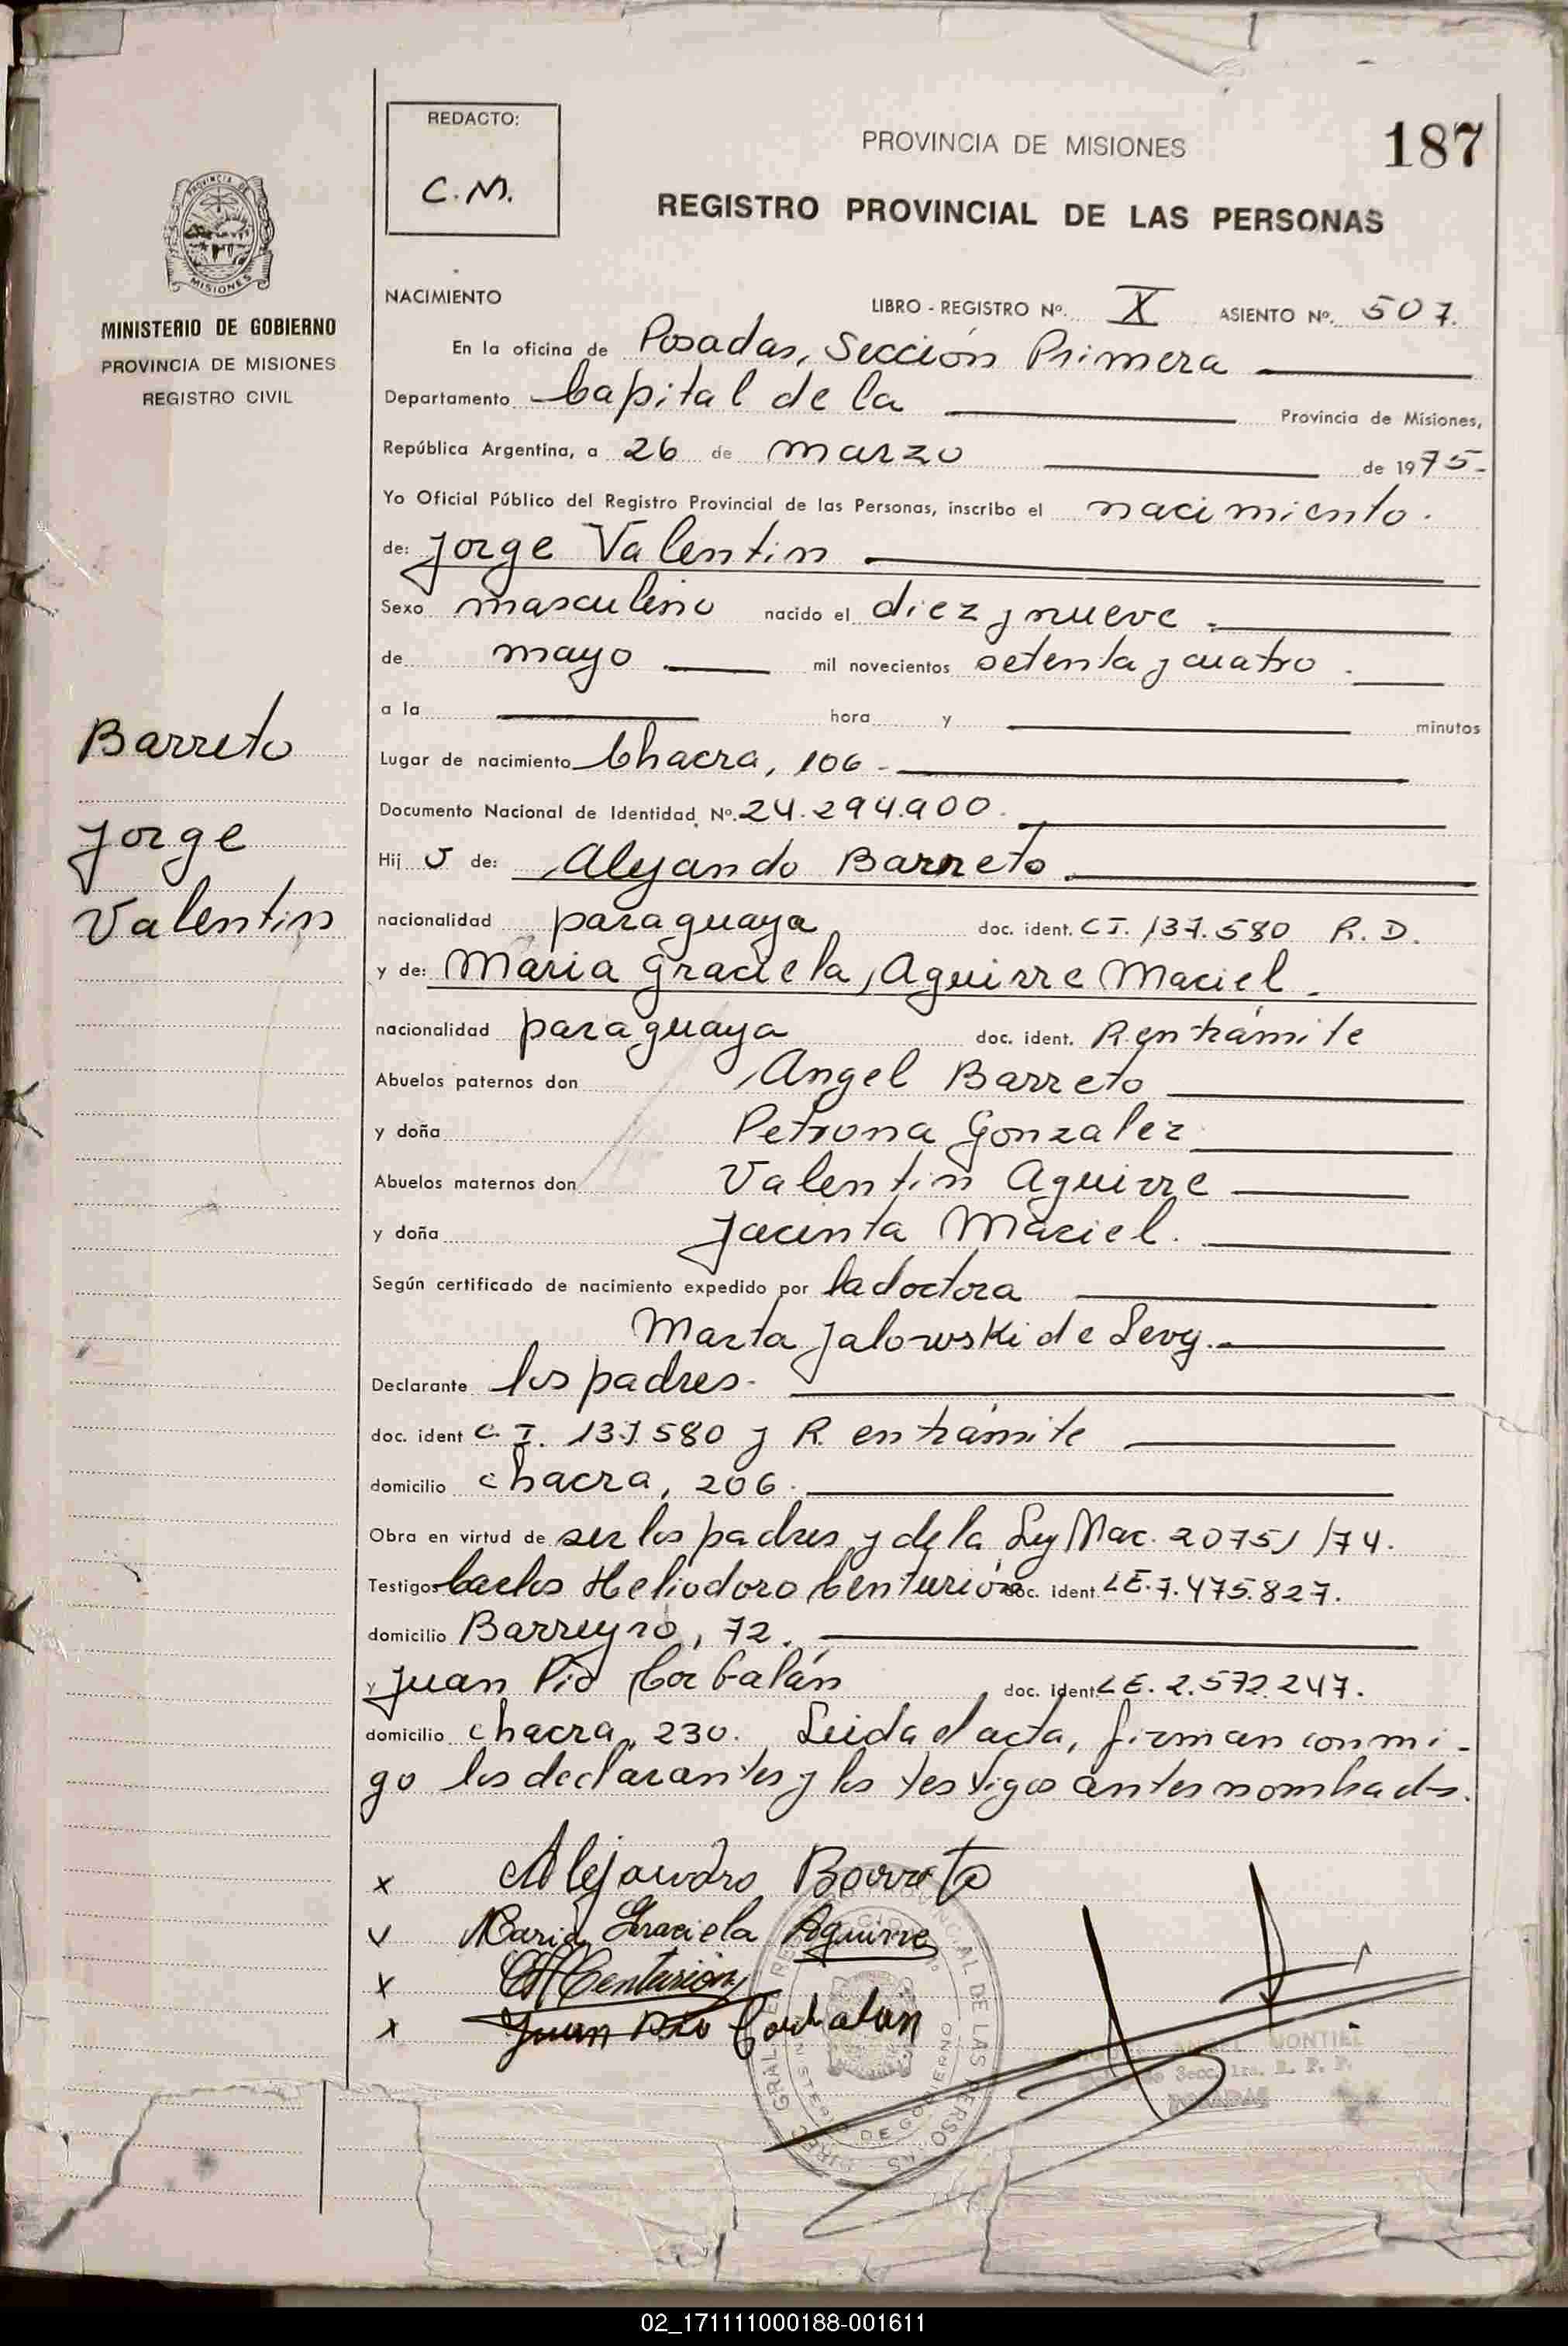 REDACTO:
C.M.
PROVINCIA DE MISIONES
187
REGISTRO PROVINCIAL DE LAS PERSONAS
PROVINCIA DE
MISIONES
MINISTERIO DE GOBIERNO
PROVINCIA DE MISIONES
REGISTRO CIVIL
NACIMIENTO
LIBRO - REGISTRO Nº. X ASIENTO Nº. 507.
En la oficina de Posadas, Sección Primera
Departamento Capital de la Provincia de Misiones,
República Argentina, a 26 de marzo de 1975.-
Yo Oficial Público del Registro Provincial de las Personas, inscribo el nacimiento.
de: Jorge Valentin
Sexo masculino nacido el diez y nueve.
de mayo mil novecientos setenta y cuatro.
a la hora y minutos
Barreto
Jorge
Valentin
Lugar de nacimiento Chacra, 106.-
Documento Nacional de Identidad Nº. 24.294.900.
Hij o de: Alejando Barreto.
nacionalidad paraguaya doc. ident. CI. 137.580 R.D.
y de: Maria Graciela, Aguirre Maciel.
nacionalidad paraguaya doc. ident. R. en trámite
Abuelos paternos don Angel Barreto
y doña Petrona Gonzalez
Abuelos maternos don Valentin Aguirre
y doña Jacinta Maciel.
Según certificado de nacimiento expedido por la doctora
Marta Jalowski de Levy.
Declarante los padres.
doc. ident C.I. 137580 y R. en trámite
domicilio chacra, 206.
Obra en virtud de ser los padres y de la Ley Nac. 20751/74.
Testigos Carlos Heliodoro Centurión doc. ident. LE.7.475.827.
domicilio Barreyro, 72.
y Juan Pio Corbalán doc. ident. LE. 2.572.247.
domicilio chacra, 230. Leida el acta, firman conmi-
go los declarantes y los testigos antes nombrados.
x Alejandro Barreto
Maria Graciela Aguirre
x CHCenturion
x Juan Pio Corbalán
MONTIEL
Secc. 1ra. R. P. P.
POSADAS
02_171111000188-001611